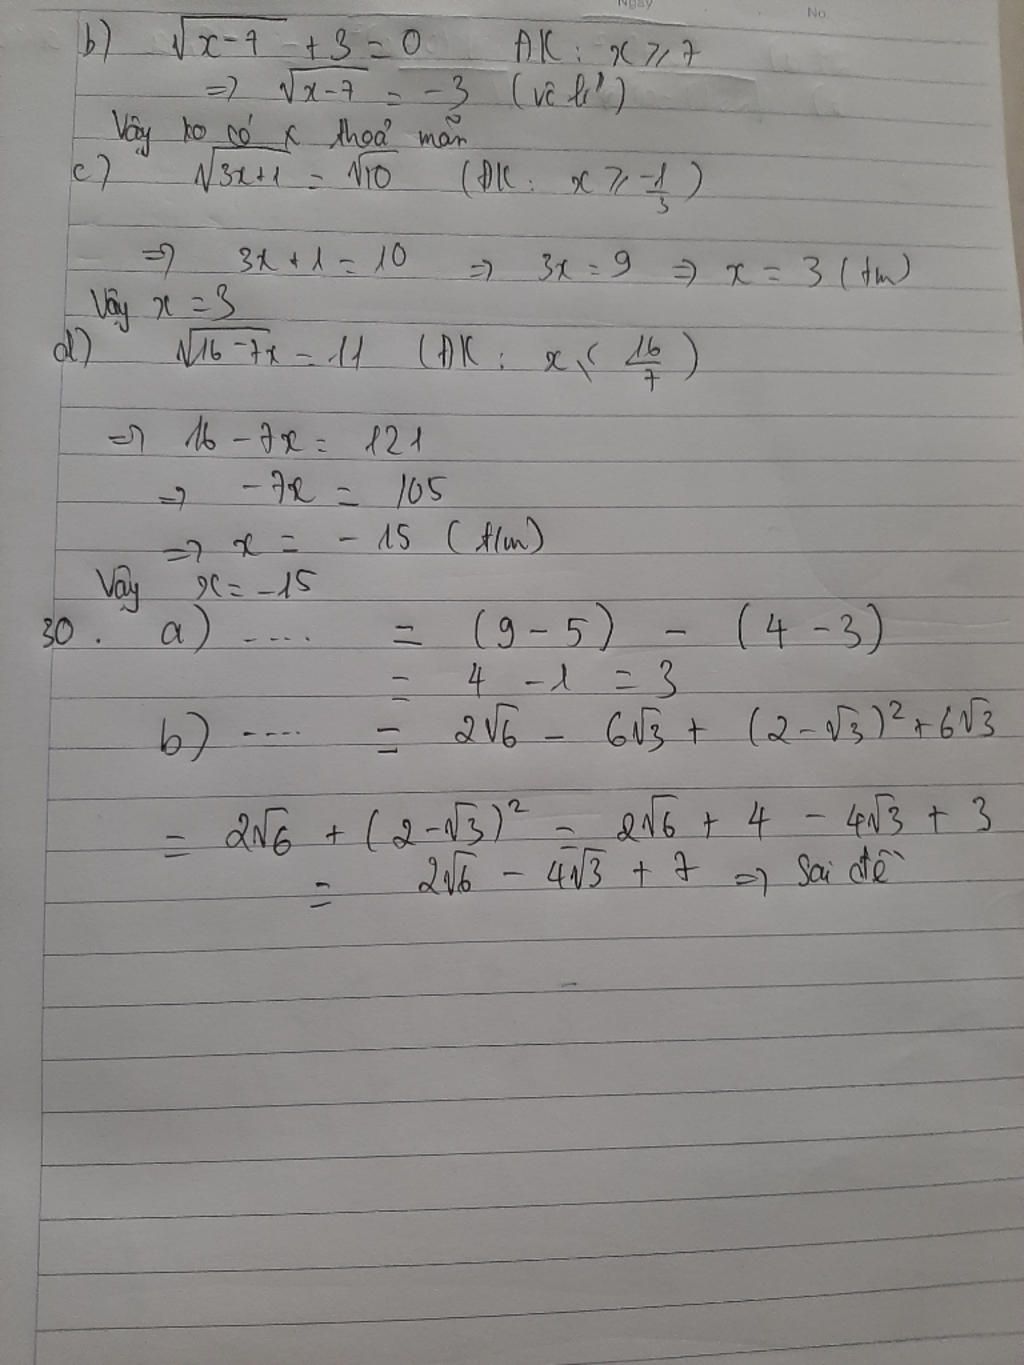 Ngày
No.
b) √(x-7) + 3 = 0 ĐK: x ⩾ 7
⇒ √(x-7) = -3 (vô lí)
Vậy ko có x thoả mãn
c) √(3x+1) = √10 (ĐK: x ⩾ -1/3)
⇒ 3x + 1 = 10 ⇒ 3x = 9 ⇒ x = 3 (tm)
Vậy x = 3
d) √(16-7x) = 11 (ĐK: x ⩽ 16/7)
⇒ 16 - 7x = 121
⇒ -7x = 105
⇒ x = -15 (t/m)
Vậy x = -15
30. a) .... = (9 - 5) - (4 - 3)
= 4 - 1 = 3
b) .... = 2√6 - 6√3 + (2-√3)² + 6√3
= 2√6 + (2-√3)² = 2√6 + 4 - 4√3 + 3
= 2√6 - 4√3 + 7 ⇒ Sai đề